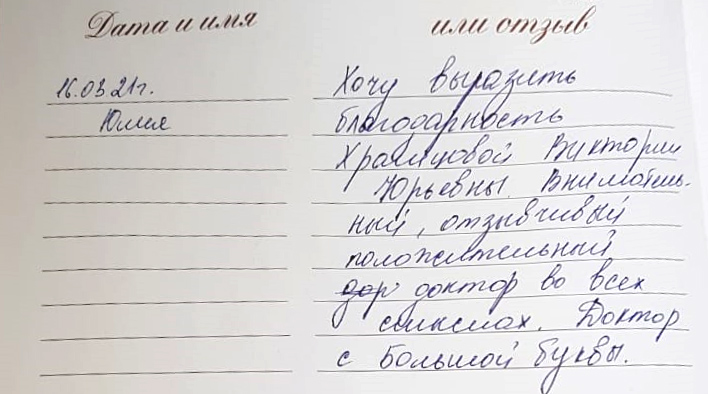 Дата и имя
или отзыв
16.03.21г.
Юлия
Хочу выразить
благодарность
Храмцовой Виктории
Юрьевны. Вниматель-
ный, отзывчивый
положительный
доктор во всех
смыслах. Доктор
с большой буквы.